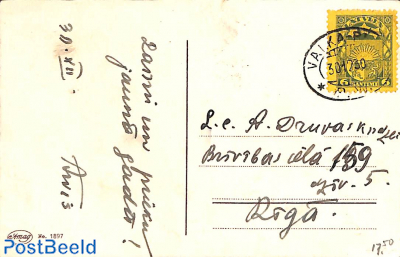 30. XII
Laimi un prieku
jaunā gadā!
LATVIJA
VALKA
30 12 30
L.c. A. Druvaskndze
Brīvības ielā 159
dzīv. 5.
Rīgā.
No. 1897
PostBeeld
17.50